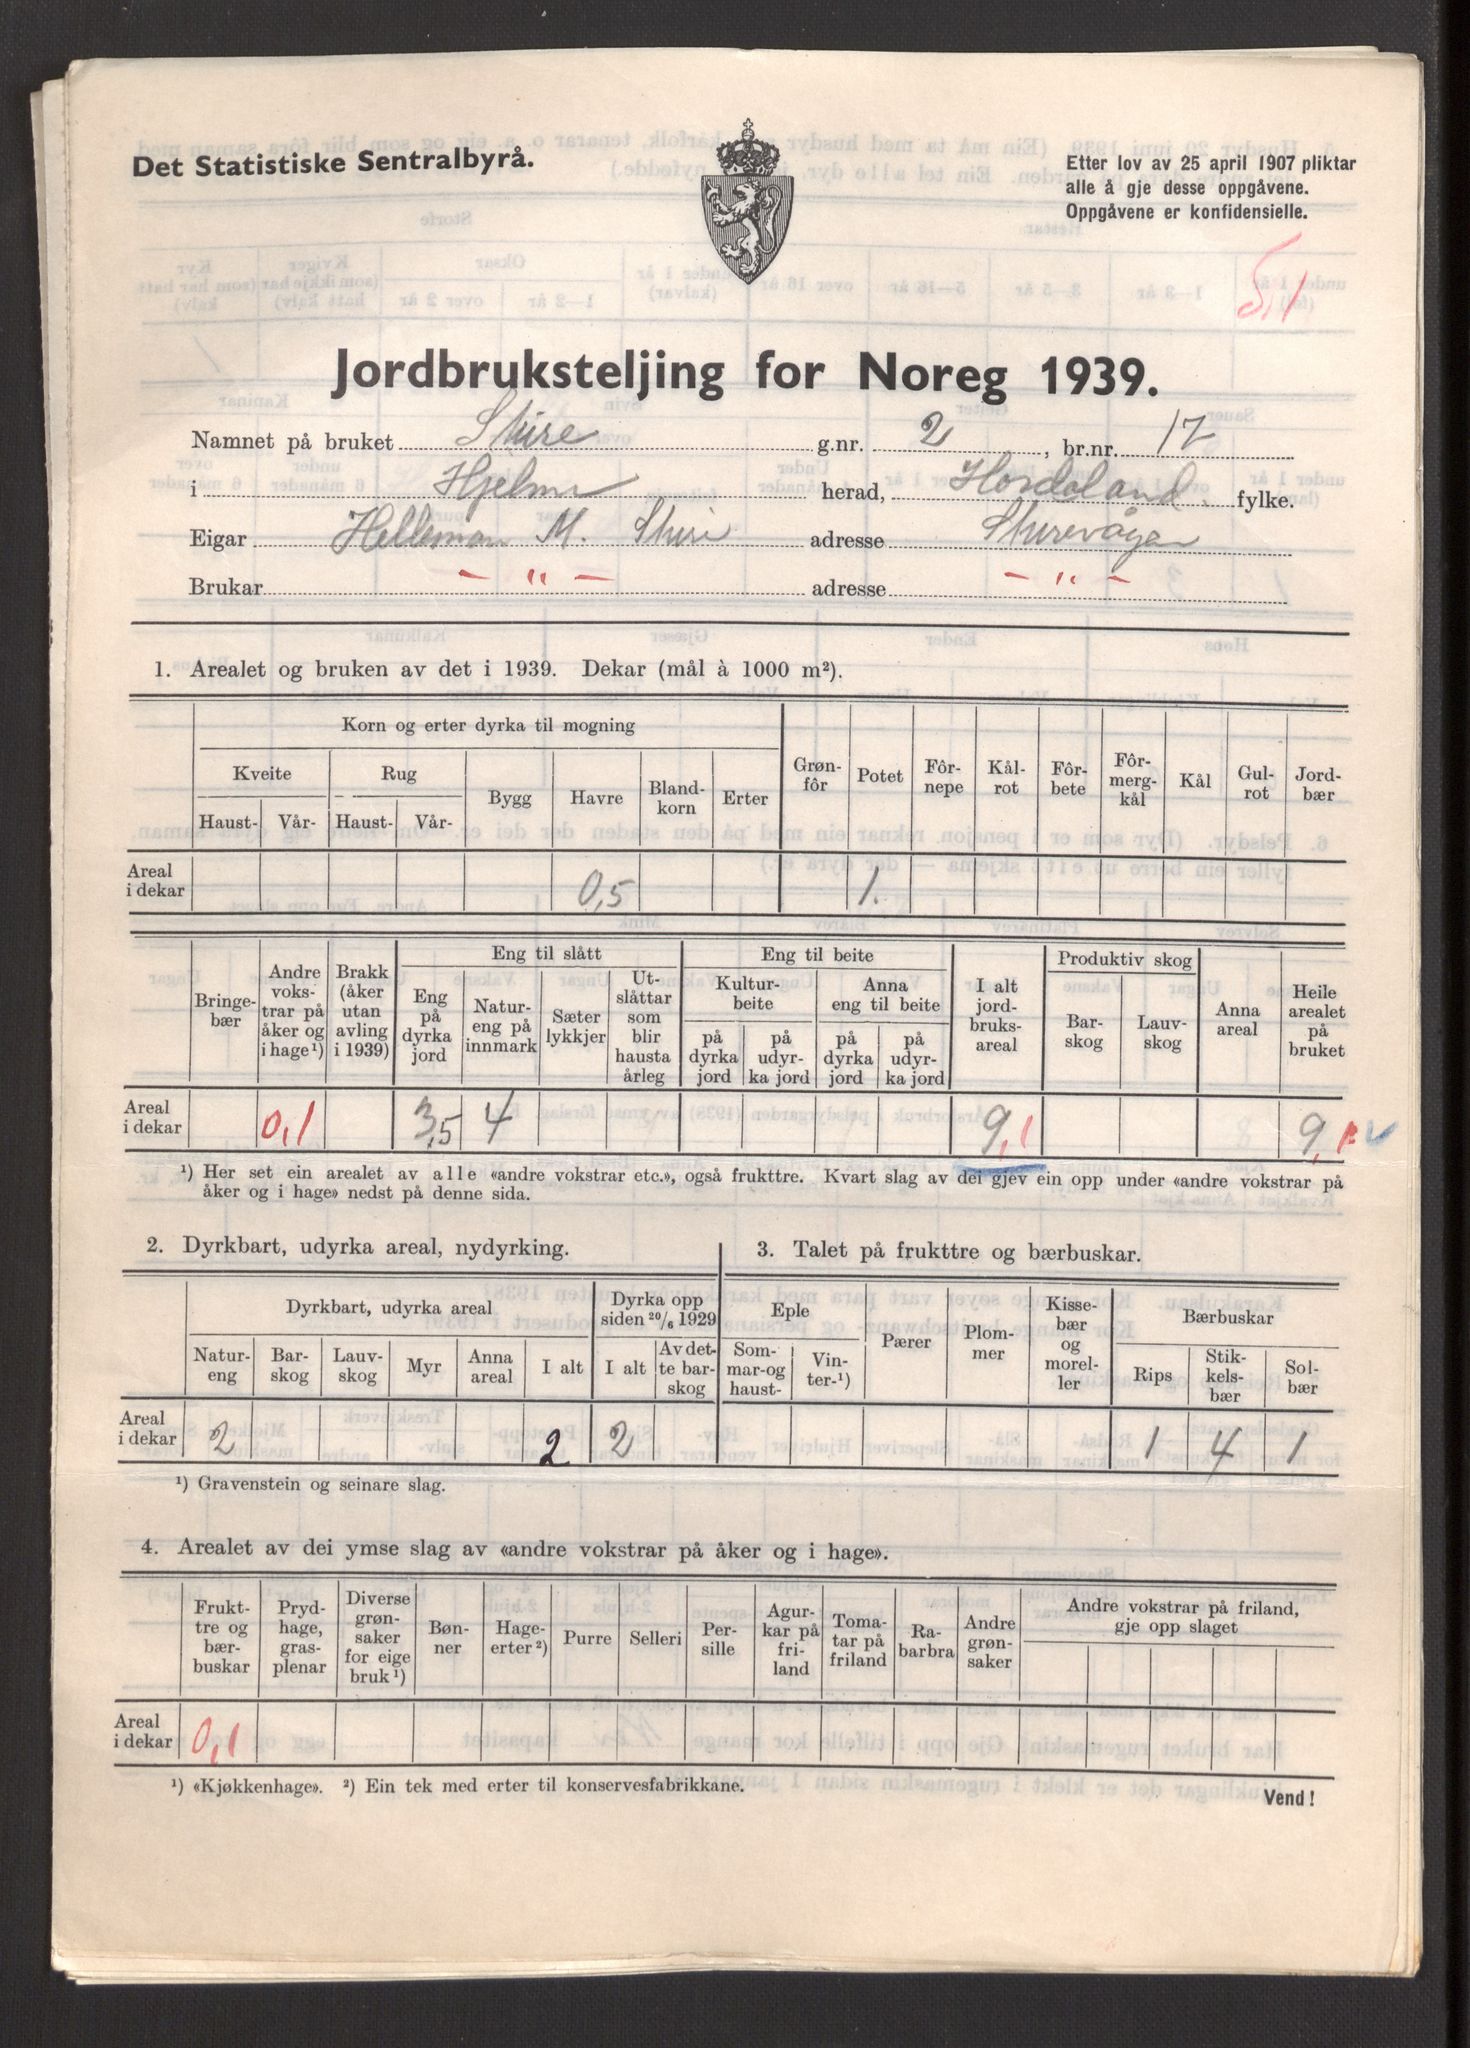 Det Statistiske Sentralbyrå.
Etter lov av 25 april 1907 pliktar
alle å gje desse oppgåvene.
Oppgåvene er konfidensielle.
5,1
Jordbruksteljing for Noreg 1939.
Namnet på bruket Sture g.nr. 2, br.nr. 17
i Hjelme herad, Hordaland fylke.
Eigar Helleman M. Sture adresse Sturevågen
Brukar - „ - adresse - „ -
1. Arealet og bruken av det i 1939. Dekar (mål à 1000 m²).
Korn og erter dyrka til mogning
Kveite Rug Bygg Havre Blandkorn Erter Grønfôr Potet Fôrnepe Kålrot Fôrbete Fôrmergkål Kål Gulrot Jordbær
Haust- Vår- Haust- Vår-
Areal i dekar 0,5 1.
Bringebær Andre vokstrar på åker og i hage¹) Brakk (åker utan avling i 1939) Eng til slått Eng til beite I alt jordbruksareal Produktiv skog Anna areal Heile arealet på bruket
Eng på dyrka jord Natureng på innmark Sæterlykkjer Utslåttar som blir hausta årleg Kulturbeite Anna eng til beite Barskog Lauvskog
på dyrka jord på udyrka jord på dyrka jord på udyrka jord
Areal i dekar 0,1 3,5 4 9,1 9,1 v
¹) Her set ein arealet av alle «andre vokstrar etc.», også frukttre. Kvart slag av dei gjev ein opp under «andre vokstrar på
åker og i hage» nedst på denne sida.
2. Dyrkbart, udyrka areal, nydyrking.
Dyrkbart, udyrka areal Dyrka opp siden 20/6 1929
Natureng Barskog Lauvskog Myr Anna areal I alt I alt Av dette barskog
Areal i dekar 2 2 2
¹) Gravenstein og seinare slag.
3. Talet på frukttre og bærbuskar.
Eple Pærer Plommer Kissebær og moreller Bærbuskar
Sommar- og haust- Vinter-¹) Rips Stikkelsbær Solbær
1 4 1
4. Arealet av dei ymse slag av «andre vokstrar på åker og i hage».
Frukttre og bærbuskar Prydhage, grasplenar Diverse grønsaker for eige bruk¹) Bønner Hageerter²) Purre Selleri Persille Agurkar på friland Tomatar på friland Rabarbra Andre grønsaker Andre vokstrar på friland, gje opp slaget
Areal i dekar 0,1
¹) «Kjøkkenhage». ²) Ein tek med erter til konservesfabrikkane.
Vend!